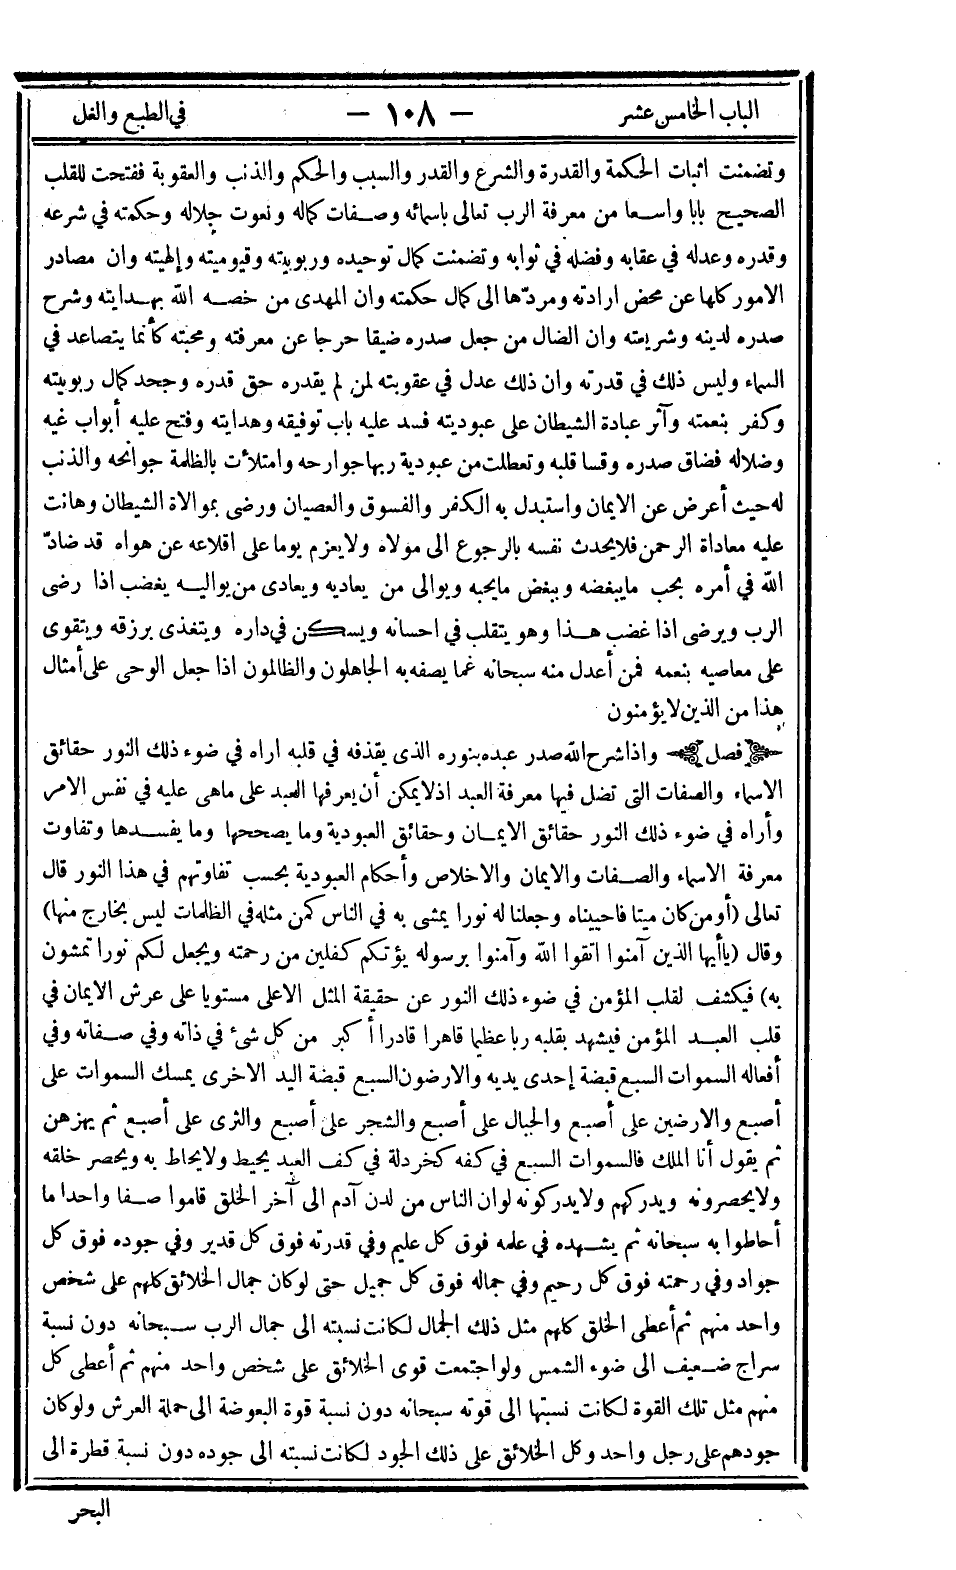 الباب الخامس عشر — ١٠٨ — في الطبع والغل
وتضمنت اثبات الحكمة والقدرة والشرع والقدر والسبب والحكم والذنب والعقوبة ففتحت للقلب
الصحيح بابا واسعا من معرفة الرب تعالى باسمائه وصفات كماله ونعوت جلاله وحكمته في شرعه
وقدره وعدله في عقابه وفضله في ثوابه وتضمنت كمال توحيده وربوبيته وقيوميته وإلهيته وان مصادر
الامور كلها عن محض ارادته ومردّها الى كمال حكمته وان المهدى من خصه الله بهدايته وشرح
صدره لدينه وشريعته وان الضال من جعل صدره ضيقا حرجا عن معرفته ومحبته كأنما يتصاعد في
السماء وليس ذلك في قدرته وان ذلك عدل في عقوبته لمن لم يقدره حق قدره وجحد كمال ربوبيته
وكفر بنعمته وآثر عبادة الشيطان على عبوديته فسد عليه باب توفيقه وهدايته وفتح عليه أبواب غيه
وضلاله فضاق صدره وقسا قلبه وتعطلت من عبودية ربها جوارحه وامتلأت بالظلمة جوانحه والذنب
له حيث أعرض عن الايمان واستبدل به الكفر والفسوق والعصيان ورضى بموالاة الشيطان وهانت
عليه معاداة الرحمن فلا يحدث نفسه بالرجوع الى مولاه ولا يعزم يوما على اقلاعه عن هواه قد ضادّ
الله في أمره بحب ما يبغضه وببغض ما يحبه ويوالى من يعاديه ويعادى من يواليه يغضب اذا رضى
الرب ويرضى اذا غضب هذا وهو يتقلب في احسانه ويسكن في داره ويتغذى برزقه ويتقوى
على معاصيه بنعمه فمن أعدل منه سبحانه عما يصفه به الجاهلون والظالمون اذا جعل الوحى على أمثال
هذا من الذين لا يؤمنون
﴿فصل﴾ واذا شرح الله صدر عبده بنوره الذى يقذفه في قلبه اراه في ضوء ذلك النور حقائق
الاسماء والصفات التى تضل فيها معرفة العبد اذ لا يمكن أن يعرفها العبد على ماهى عليه في نفس الامر
وأراه في ضوء ذلك النور حقائق الايمان وحقائق العبودية وما يصححها وما يفسدها وتفاوت
معرفة الاسماء والصفات والايمان والاخلاص وأحكام العبودية بحسب تفاوتهم في هذا النور قال
تعالى (أومن كان ميتا فاحييناه وجعلنا له نورا يمشى به في الناس كمن مثله في الظلمات ليس بخارج منها)
وقال (ياأيها الذين آمنوا اتقوا الله وآمنوا برسوله يؤتكم كفلين من رحمته ويجعل لكم نورا تمشون
به) فيكشف لقلب المؤمن في ضوء ذلك النور عن حقيقة المثل الاعلى مستويا على عرش الايمان في
قلب العبد المؤمن فيشهد بقلبه ربا عظيما قاهرا قادرا أكبر من كل شئ في ذاته وفي صفاته وفي
أفعاله السموات السبع قبضة إحدى يديه والارضون السبع قبضة اليد الاخرى يمسك السموات على
أصبع والارضين على أصبع والجبال على أصبع والشجر على أصبع والثرى على أصبع ثم يهزهن
ثم يقول أنا الملك فالسموات السبع في كفه كخردلة في كف العبد يحيط ولا يحاط به ويحصر خلقه
ولا يحصرونه ويدركهم ولا يدركونه لو ان الناس من لدن آدم الى آخر الخلق قاموا صفا واحدا ما
أحاطوا به سبحانه ثم يشهده في علمه فوق كل عليم وفي قدرته فوق كل قدير وفي جوده فوق كل
جواد وفي رحمته فوق كل رحيم وفي جماله فوق كل جميل حتى لو كان جمال الخلائق كلهم على شخص
واحد منهم ثم أعطى الخلق كلهم مثل ذلك الجمال لكانت نسبته الى جمال الرب سبحانه دون نسبة
سراج ضعيف الى ضوء الشمس ولو اجتمعت قوى الخلائق على شخص واحد منهم ثم أعطى كل
منهم مثل تلك القوة لكانت نسبتها الى قوته سبحانه دون نسبة قوة البعوضة الى حملة العرش ولو كان
جودهم على رجل واحد وكل الخلائق على ذلك الجود لكانت نسبته الى جوده دون نسبة قطرة الى
البحر